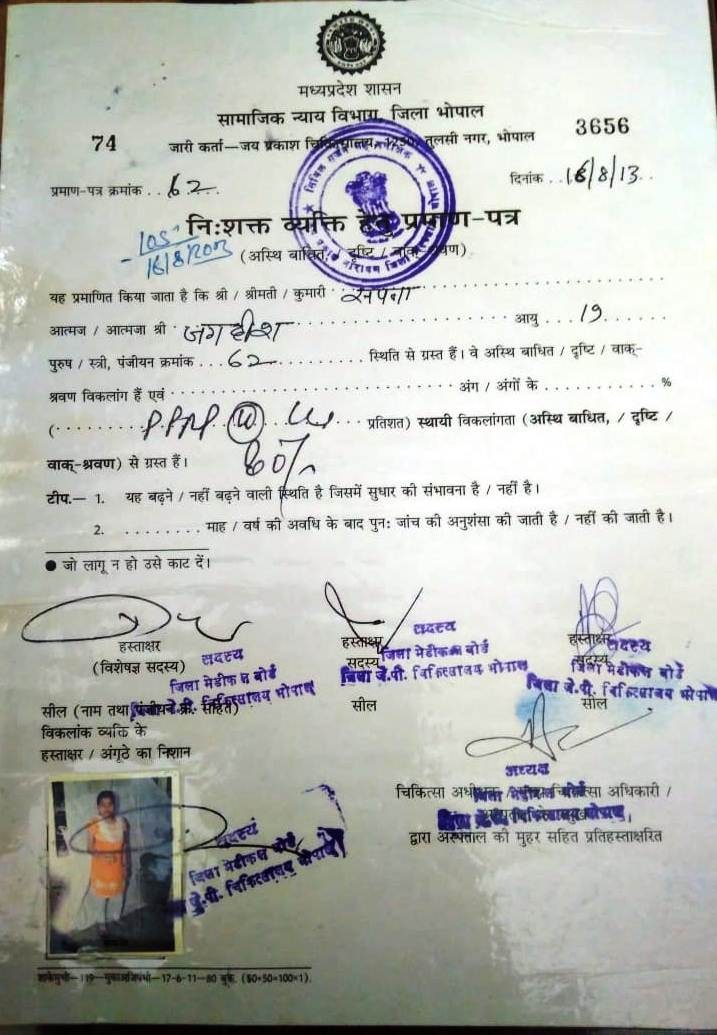 मध्यप्रदेश शासन
सामाजिक न्याय विभाग, जिला भोपाल
74 जारी कर्ता—जय प्रकाश चिकित्सालय, 1250, तुलसी नगर, भोपाल 3656
प्रमाण-पत्र क्रमांक . . 62 . . दिनांक . . 16/8/13 . .
नि:शक्त व्यक्ति हेतु प्रमाण-पत्र
16/8/2013
(अस्थि बाधित / दृष्टि / वाक्-श्रवण)
यह प्रमाणित किया जाता है कि श्री / श्रीमती / कुमारी सपना
आत्मज / आत्मजा श्री जगदीश आयु 19
पुरुष / स्त्री, पंजीयन क्रमांक 62 स्थिति से ग्रस्त हैं। वे अस्थि बाधित / दृष्टि / वाक्-
श्रवण विकलांग हैं एवं अंग / अंगों के %
( PPRP प्रतिशत) स्थायी विकलांगता (अस्थि बाधित, / दृष्टि /
वाक्-श्रवण) से ग्रस्त हैं। 60%
टीप.— 1. यह बढ़ने / नहीं बढ़ने वाली स्थिति है जिसमें सुधार की संभावना है / नहीं है।
2. . . . . . . . . माह / वर्ष की अवधि के बाद पुन: जांच की अनुशंसा की जाती है / नहीं की जाती है।
● जो लागू न हो उसे काट दें।
हस्ताक्षर हस्ताक्षर हस्ताक्षर
(विशेषज्ञ सदस्य) सदस्य सदस्य
सदस्य
जिला मेडीकल बोर्ड
जिला जे.पी. चिकित्सालय भोपाल
सदस्य
जिला मेडीकल बोर्ड
जिला जे.पी. चिकित्सालय भोपाल
सदस्य
जिला मेडीकल बोर्ड
जिला जे.पी. चिकित्सालय भोपाल
सील (नाम तथा पंजीयन क्र. सहित) सील सील
विकलांक व्यक्ति के
हस्ताक्षर / अंगूठे का निशान
अध्यक्ष
जिला मेडीकल बोर्ड
जिला जे.पी. चिकित्सालय भोपाल
चिकित्सा अधीक्षक / चिकित्सा अधिकारी /
द्वारा अस्पताल की मुहर सहित प्रतिहस्ताक्षरित
सदस्य
जिला मेडीकल बोर्ड
जे.पी. चिकित्सालय भोपाल
शाकेमुभो—119—मुकाअजिपभो—17-6-11—80 बुकें. (50×50×100×1).